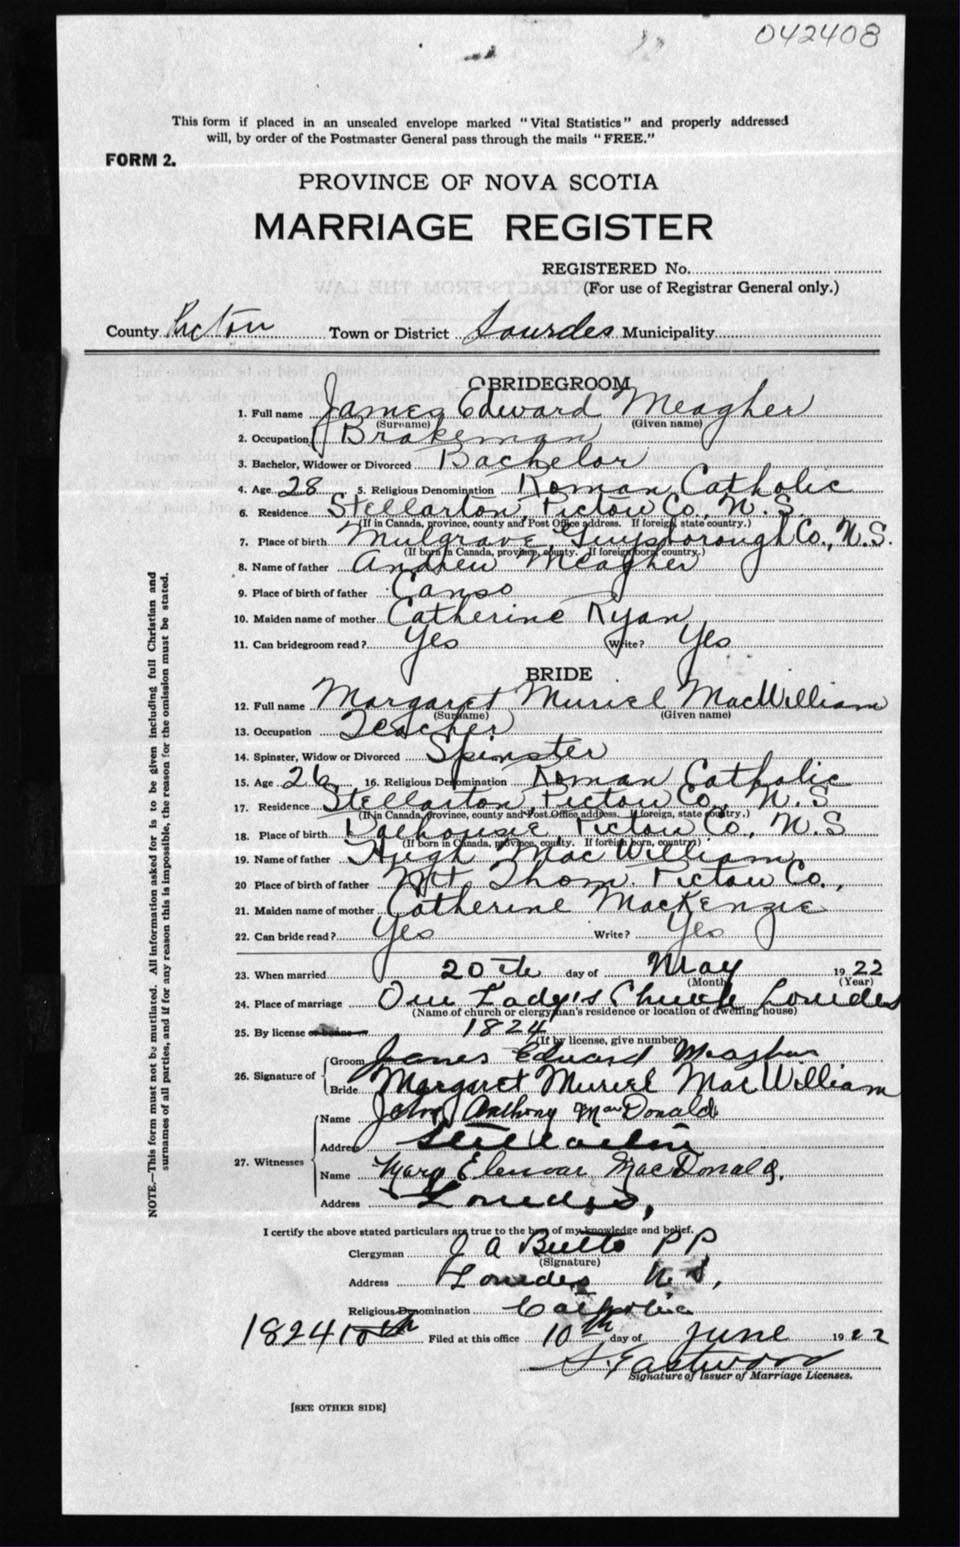 042408
This form if placed in an unsealed envelope marked "Vital Statistics" and properly addressed
will, by order of the Postmaster General pass through the mails "FREE."
FORM 2.
PROVINCE OF NOVA SCOTIA
MARRIAGE REGISTER
REGISTERED No.
(For use of Registrar General only.)
County Pictou Town or District Lourdes Municipality
BRIDEGROOM
1. Full name James Edward Meagher
(Surname) (Given name)
2. Occupation Brakeman
3. Bachelor, Widower or Divorced Bachelor
4. Age 28 5. Religious Denomination Roman Catholic
6. Residence Stellarton, Pictou Co., N.S.
(If in Canada, province, county and Post Office address. If foreign, state country.)
7. Place of birth Mulgrave Guysborough Co., N.S.
(If born in Canada, province, county. If foreign born, country.)
8. Name of father Andrew Meagher
9. Place of birth of father Canso
10. Maiden name of mother Catherine Ryan
11. Can bridegroom read? Yes Write? Yes
BRIDE
12. Full name Margaret Muriel MacWilliam
(Surname) (Given name)
13. Occupation Teacher
14. Spinster, Widow or Divorced Spinster
15. Age 26 16. Religious Denomination Roman Catholic
17. Residence Stellarton, Pictou Co., N.S
(If in Canada, province, county and Post Office address. If foreign, state country.)
18. Place of birth Dalhousie, Pictou Co., N.S
(If born in Canada, province, county. If foreign born, country)
19. Name of father Hugh MacWilliam
20 Place of birth of father Mt Thom. Pictou Co.,
21. Maiden name of mother Catherine MacKenzie
22. Can bride read? Yes Write? Yes
23. When married 20th day of May 1922
(Month) (Year)
24. Place of marriage Our Lady's Church Lourdes
(Name of church or clergyman's residence or location of dwelling house)
25. By license or banns 1824
(If by license, give number)
26. Signature of Groom James Edward Meagher
Bride Margaret Muriel MacWilliam
27. Witnesses Name John Anthony MacDonald
Address Stellarton
Name Mary Elenoar MacDonald.
Address Lourdes,
I certify the above stated particulars are true to the best of my knowledge and belief.
Clergyman J A Butts P P
(Signature)
Address Lourdes N S,
Religious Denomination Catholic
1824 10th Filed at this office 10th day of June 1922
S. Eastwood
Signature of Issuer of Marriage Licenses.
[SEE OTHER SIDE]
NOTE.—This form must not be mutilated. All information asked for is to be given including full Christian and
surnames of all parties, and if for any reason this is impossible, the reason for the omission must be stated.